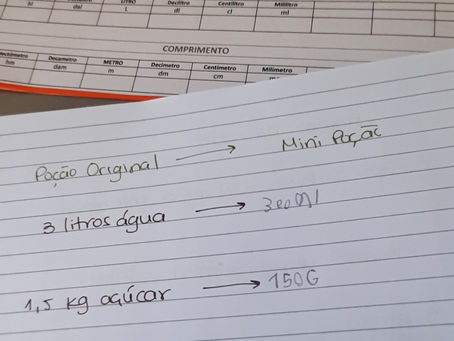 dal LITRO Decilitro Centilitro Mililitro
L dl cl ml
COMPRIMENTO
Decâmetro METRO Decímetro Centímetro Milímetro
hm dam m dm cm
Poção Original → Mini Poção
3 litros água → 300Ml
1,5 kg açúcar → 150G